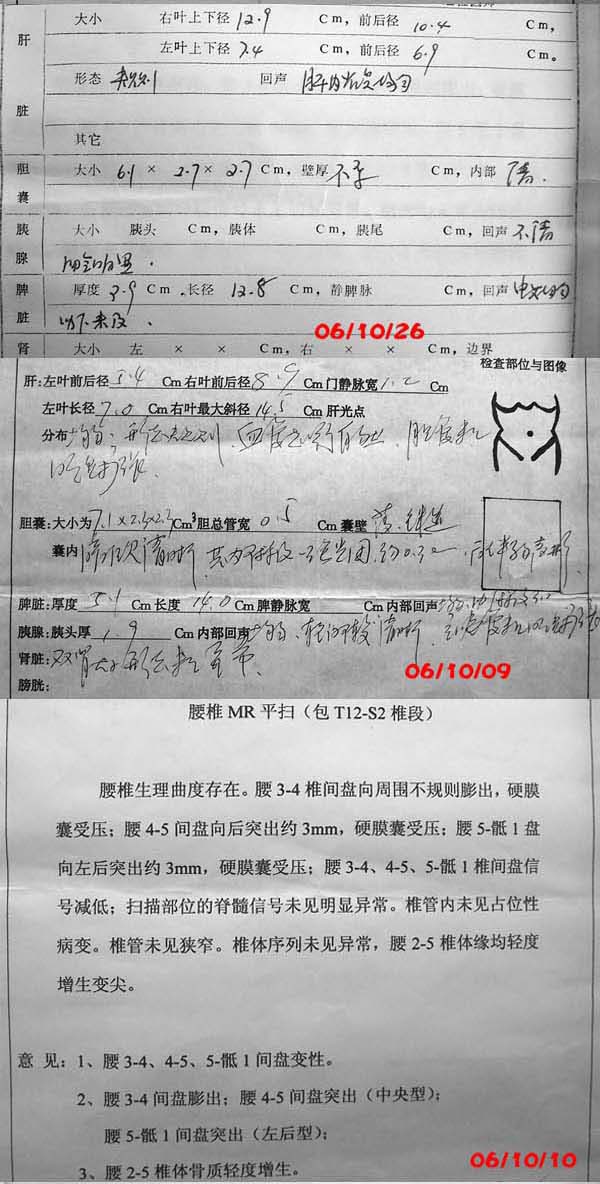 肝脏 大小 右叶上下径 12.9 Cm,前后径 10.4 Cm,
左叶上下径 7.4 Cm,前后径 6.9 Cm。
形态 回声
其它
胆囊 大小 6.1 × 2.7 × 2.7 Cm,壁厚 不厚 Cm,内部 清.
胰腺 大小 胰头 Cm,胰体 Cm,胰尾 Cm,回声 不清
脾脏 厚度 3.9 Cm.长径 12.8 Cm,静脾脉 Cm,回声
肋下未及.
06/10/26
肾 大小 左 × × Cm,右 × × Cm,边界
检查部位与图像
肝:左叶前后径 5.4 Cm右叶前后径 8.9 Cm门静脉宽 1.2 Cm
左叶长径 7.0 Cm右叶最大斜径 14.5 Cm肝光点
分布
胆囊:大小为 7.1×2.5×2.3 Cm³胆总管宽 0.5 Cm囊壁
囊内
脾脏:厚度 5.1 Cm长度 14.0 Cm脾静脉宽 Cm内部回声
胰腺:胰头厚 1.9 Cm内部回声
肾脏:双肾
膀胱:
06/10/09
腰椎 MR 平扫(包 T12-S2 椎段)
腰椎生理曲度存在。腰 3-4 椎间盘向周围不规则膨出,硬膜
囊受压;腰 4-5 间盘向后突出约 3mm,硬膜囊受压;腰 5-骶 1 盘
向左后突出约 3mm,硬膜囊受压;腰 3-4、4-5、5-骶 1 椎间盘信
号减低;扫描部位的脊髓信号未见明显异常。椎管内未见占位性
病变。椎管未见狭窄。椎体序列未见异常,腰 2-5 椎体缘均轻度
增生变尖。
意 见:1、腰 3-4、4-5、5-骶 1 间盘变性。
2、腰 3-4 间盘膨出;腰 4-5 间盘突出(中央型);
腰 5-骶 1 间盘突出(左后型);
3、腰 2-5 椎体骨质轻度增生。
06/10/10